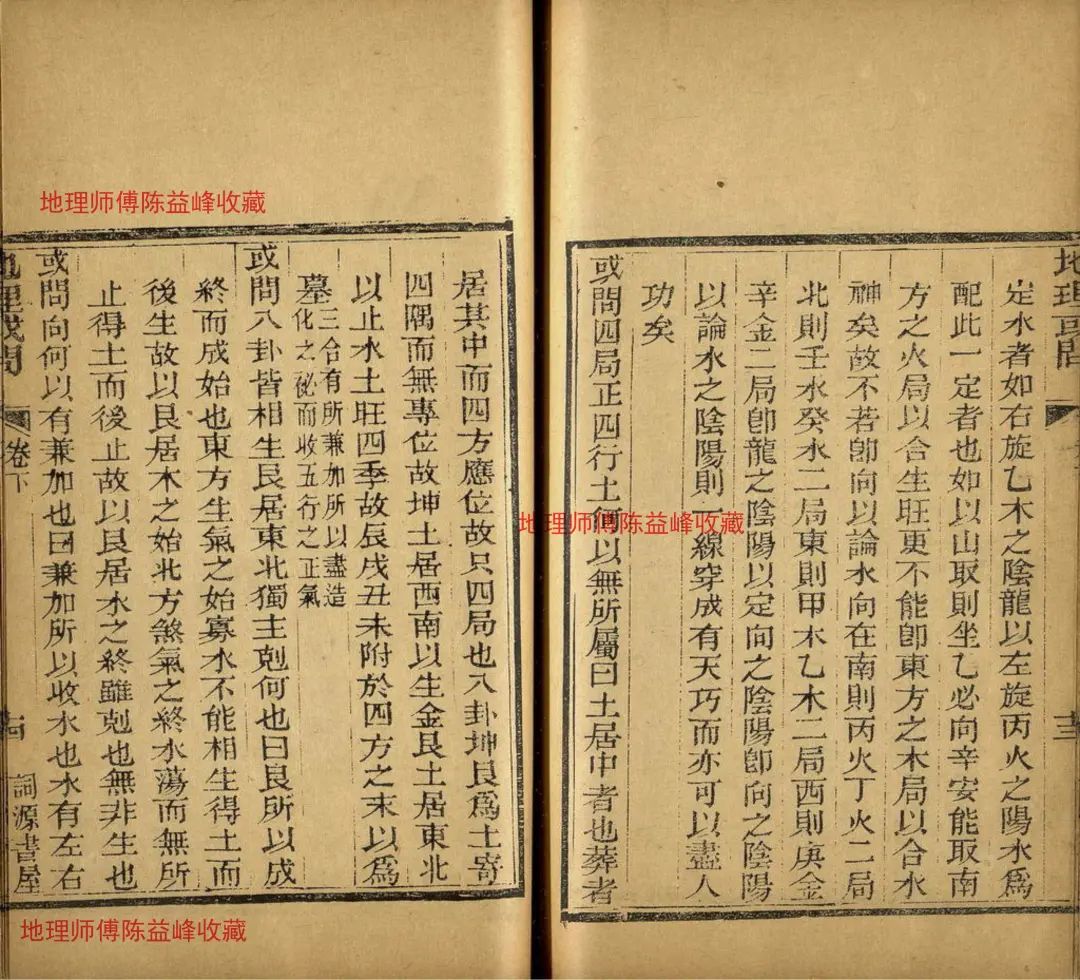 地理或問
十三
定水者如右旋乙木之陰龍以左旋丙火之陽水爲
配此一定者也如以山取則坐乙必向辛安能取南
方之火局以合生旺更不能卽東方之木局以合水
神矣故不若卽向以論水向在南則丙火丁火二局
北則壬水癸水二局東則甲木乙木二局西則庚金
辛金二局卽龍之陰陽以定向之陰陽卽向之陰陽
以論水之陰陽則一線穿成有天巧而亦可以盡人
功矣
或問四局正四行土何以無所屬曰土居中者也葬者
居其中而四方應位故只四局也八卦坤艮爲土寄
四隅而無專位故坤土居西南以生金艮土居東北
以止水土旺四季故辰戌丑未附於四方之末以爲
墓三合有所兼加所以盡造
化之祕而收五行之正氣
或問八卦皆相生艮居東北獨主剋何也曰艮所以成
終而成始也東方生氣之始寡水不能相生得土而
後生故以艮居木之始北方煞氣之終水蕩而無所
止得土而後止故以艮居水之終雖剋也無非生也
或問向何以有兼加也曰兼加所以收水也水有左右
地理或問
卷下
十四
詞源書屋
地理师傅陈益峰收藏
地理师傅陈益峰收藏
地理师傅陈益峰收藏